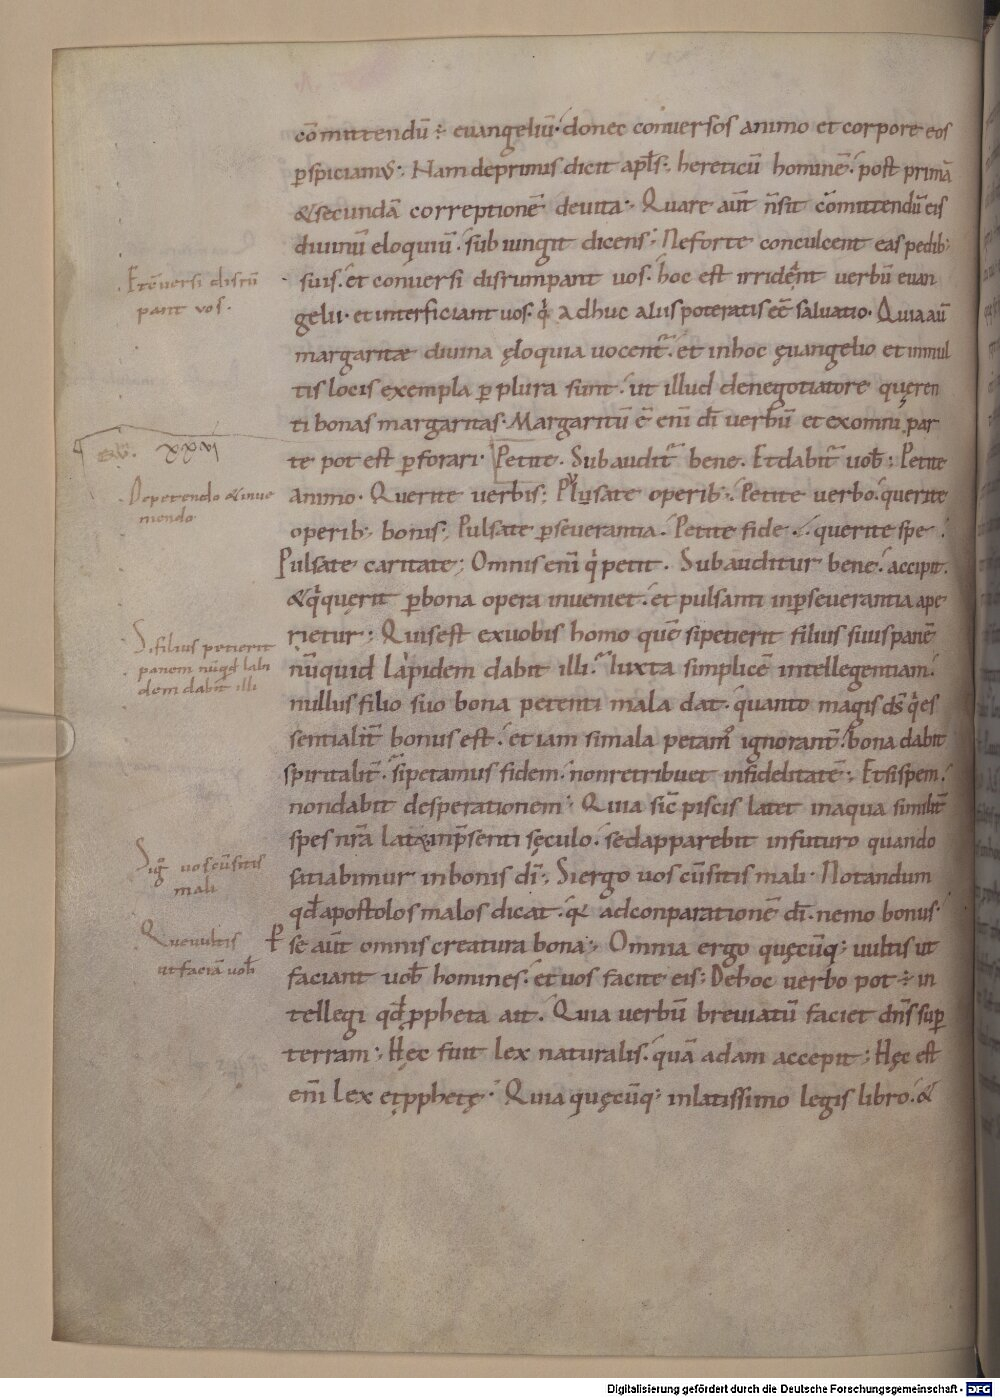 cōmittendū ÷ euangeliū· donec conuersos animo et corpore eos
ꝑspiciamꝰ; Nam deprimis dicit apl̄s; hereticū hominē· post primā
& secundā correptionē deuita; Quare aūt n̄ sit cōmittendū eis
diuinū eloquiū· subiungit dicens; Neforte conculcent eas pedib;
suis· et conuersi disrumpant uos· hoc est irrident uerbū euan
Et cūersi disrū
pant vos·
gelii· et interficiant uos· qͥ adhuc aliis poteratis eē saluatio· Quia aū
margaritae diuina ęloquia uocent᷑· et inhoc ęuangelio et inmul
tis locis exempla ꝑplura sunt· ut illud denegotiatore quęren
ti bonas margaritas· Margaritū ē enī dī uerbū et exomni par
xxxvi
te pot est ꝑforari· Petite· Subaudit᷑ bene· Et dabit᷑ uob̄; Petite
De petendo & inue
niendo·
animo· Querite uerbis; Pulsate operib;· Petite uerbo· querite
operib; bonis; Pulsate ꝑseuerantia· Petite fide· querite spe·
Pulsate caritate; Omnis enī qͥ petit· Subauditur bene· accipit·
& qͥ quęrit ꝑbona opera inueniet· et pulsanti inꝑseuerantia ape
rietur; Quis est exuobis homo quē sipetierit filius suus panē
Si filius petierit
panem nūqd lapi
dem dabit illi
nūquid lapidem dabit illi· Iuxta simplicē intellegentiam·
nullus filio suo bona petenti mala dat· quanto magis dś qͥ es
sentialit̄ bonus est· etiam simala petamꝰ ignorant̄· bona dabit
spiritalit̄· si petamus fidem· nonretribuet infidelitatē; Et si spem·
nondabit desperationem; Quia sić piscis latet inaqua similit̄
spes nr̄a latet inp̄senti sęculo· sed apparebit infuturo quando
Si gͦ uos cū sitis
mali
satiabimur inbonis dī; Si ergo uos cū sitis mali· Notandum
qd̄ apostolos malos dicat· qͥa adconparationē dī· nemo bonus·
Que uultis
ut faciā uob̄
Per se aūt omnis creatura bona; Omnia ergo quęcūq; uultis ut
faciant uob̄ homines· et uos facite eis; De hoc uerbo pot ÷ in
tellegi qd̄ ꝓpheta ait· Quia uerbū breuiatū faciet dn̄s suꝑ
terram; Hęc fuit lex naturalis· quā adam accepit; Hęc est
enī Lex et ꝓphetę· Quia quęcūq; inlatissimo legis libro· &
Digitalisierung gefördert durch die Deutsche Forschungsgemeinschaft - DFG